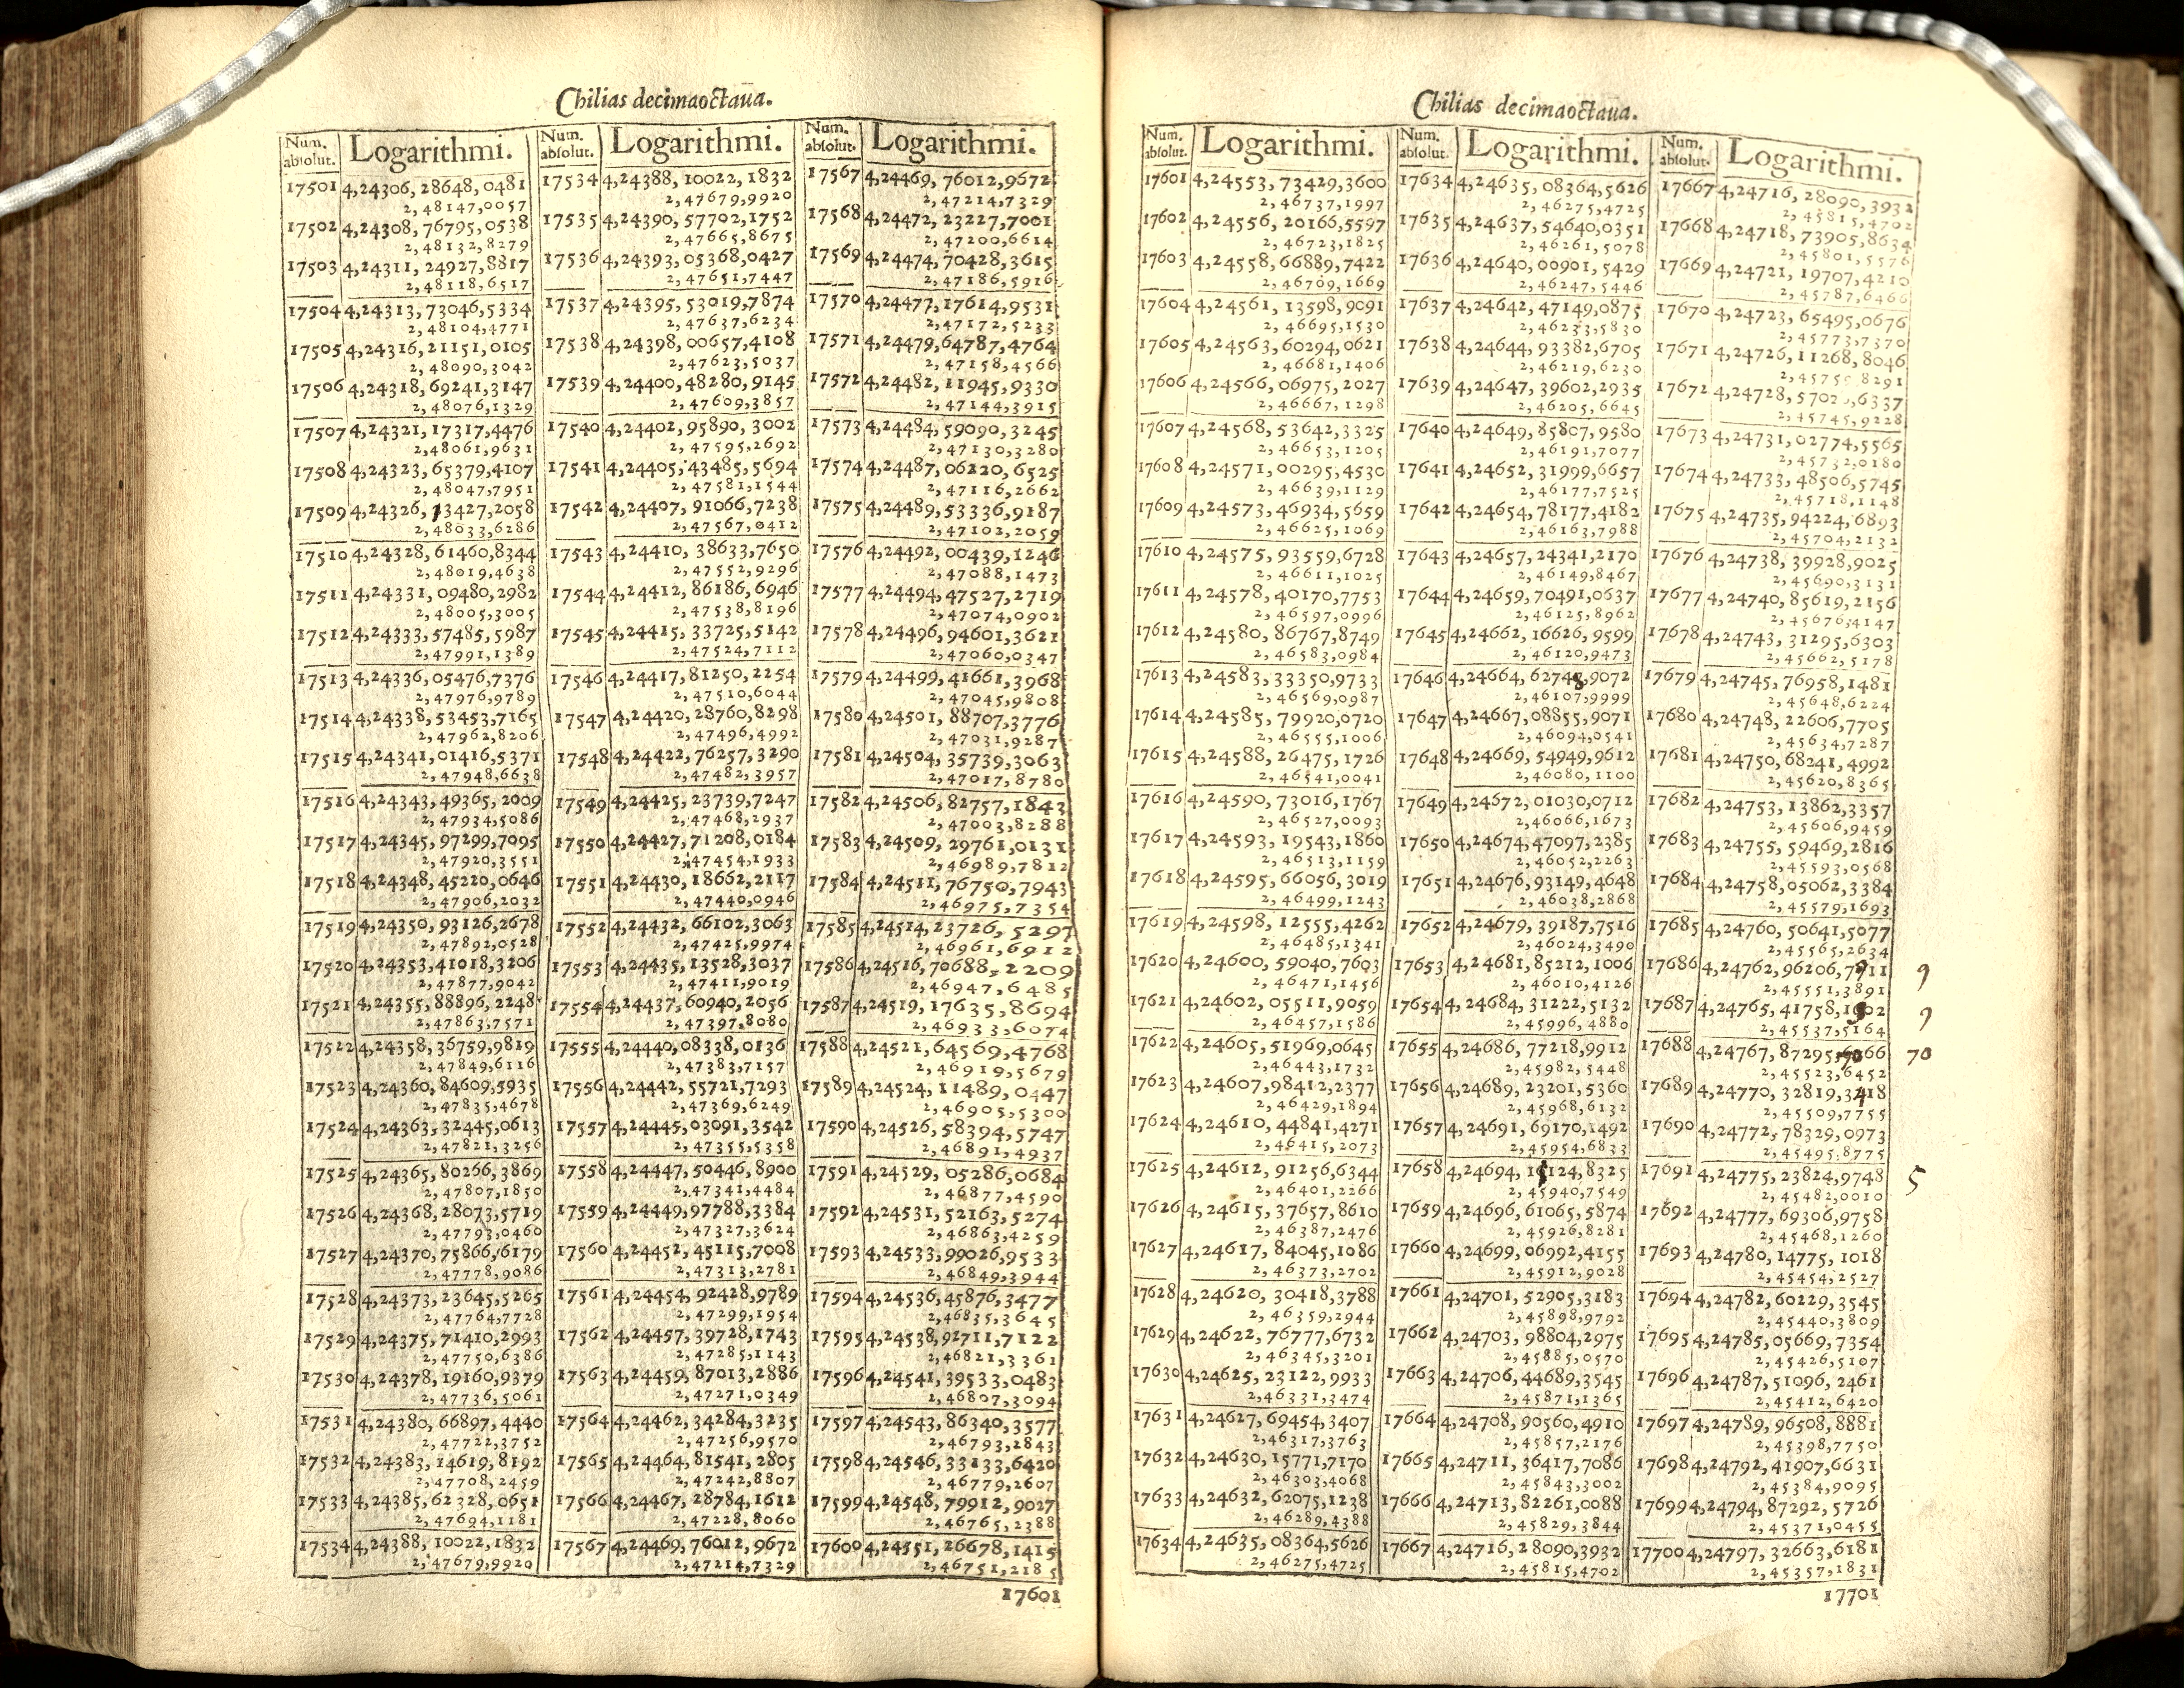 Chilias decimaoctaua.
Num. absolut. Logarithmi.
17501 4,24306,28648,0481
2,48147,0057
17502 4,24308,76795,0538
2,48132,8279
17503 4,24311,24927,8817
2,48118,6517
17504 4,24313,73046,5334
2,48104,4771
17505 4,24316,21151,0105
2,48090,3042
17506 4,24318,69241,3147
2,48076,1329
17507 4,24321,17317,4476
2,48061,9631
17508 4,24323,65379,4107
2,48047,7951
17509 4,24326,13427,2058
2,48033,6286
17510 4,24328,61460,8344
2,48019,4638
17511 4,24331,09480,2982
2,48005,3005
17512 4,24333,57485,5987
2,47991,1389
17513 4,24336,05476,7376
2,47976,9789
17514 4,24338,53453,7165
2,47962,8206
17515 4,24341,01416,5371
2,47948,6638
17516 4,24343,49365,2009
2,47934,5086
17517 4,24345,97299,7095
2,47920,3551
17518 4,24348,45220,0646
2,47906,2032
17519 4,24350,93126,2678
2,47892,0528
17520 4,24353,41018,3206
2,47877,9042
17521 4,24355,88896,2248
2,47863,7571
17522 4,24358,36759,9819
2,47849,6116
17523 4,24360,84609,5935
2,47835,4678
17524 4,24363,32445,0613
2,47821,3256
17525 4,24365,80266,3869
2,47807,1850
17526 4,24368,28073,5719
2,47793,0460
17527 4,24370,75866,6179
2,47778,9086
17528 4,24373,23645,5265
2,47764,7728
17529 4,24375,71410,2993
2,47750,6386
17530 4,24378,19160,9379
2,47736,5061
17531 4,24380,66897,4440
2,47722,3752
17532 4,24383,14619,8192
2,47708,2459
17533 4,24385,62328,0651
2,47694,1181
17534 4,24388,10022,1832
2,47679,9920
Num. absolut. Logarithmi.
17534 4,24388,10022,1832
2,47679,9920
17535 4,24390,57702,1752
2,47665,8675
17536 4,24393,05368,0427
2,47651,7447
17537 4,24395,53019,7874
2,47637,6234
17538 4,24398,00657,4108
2,47623,5037
17539 4,24400,48280,9145
2,47609,3857
17540 4,24402,95890,3002
2,47595,2692
17541 4,24405,43485,5694
2,47581,1544
17542 4,24407,91066,7238
2,47567,0412
17543 4,24410,38633,7650
2,47552,9296
17544 4,24412,86186,6946
2,47538,8196
17545 4,24415,33725,5142
2,47524,7112
17546 4,24417,81250,2254
2,47510,6044
17547 4,24420,28760,8298
2,47496,4992
17548 4,24422,76257,3290
2,47482,3957
17549 4,24425,23739,7247
2,47468,2937
17550 4,24427,71208,0184
2,47454,1933
17551 4,24430,18662,2117
2,47440,0946
17552 4,24432,66102,3063
2,47425,9974
17553 4,24435,13528,3037
2,47411,9019
17554 4,24437,60940,2056
2,47397,8080
17555 4,24440,08338,0136
2,47383,7157
17556 4,24442,55721,7293
2,47369,6249
17557 4,24445,03091,3542
2,47355,5358
17558 4,24447,50446,8900
2,47341,4484
17559 4,24449,97788,3384
2,47327,3624
17560 4,24452,45115,7008
2,47313,2781
17561 4,24454,92428,9789
2,47299,1954
17562 4,24457,39728,1743
2,47285,1143
17563 4,24459,87013,2886
2,47271,0349
17564 4,24462,34284,3235
2,47256,9570
17565 4,24464,81541,2805
2,47242,8807
17566 4,24467,28784,1612
2,47228,8060
17567 4,24469,76012,9672
2,47214,7329
Num. absolut. Logarithmi.
17567 4,24469,76012,9672
2,47214,7329
17568 4,24472,23227,7001
2,47200,6614
17569 4,24474,70428,3615
2,47186,5916
17570 4,24477,17614,9531
2,47172,5233
17571 4,24479,64787,4764
2,47158,4566
17572 4,24482,11945,9330
2,47144,3915
17573 4,24484,59090,3245
2,47130,3280
17574 4,24487,06220,6525
2,47116,2662
17575 4,24489,53336,9187
2,47102,2059
17576 4,24492,00439,1246
2,47088,1473
17577 4,24494,47527,2719
2,47074,0902
17578 4,24496,94601,3621
2,47060,0347
17579 4,24499,41661,3968
2,47045,9808
17580 4,24501,88707,3776
2,47031,9287
17581 4,24504,35739,3063
2,47017,8780
17582 4,24506,82757,1843
2,47003,8288
17583 4,24509,29761,0131
2,46989,7812
17584 4,24511,76750,7943
2,46975,7354
17585 4,24514,23726,5297
2,46961,6912
17586 4,24516,70688,2209
2,46947,6485
17587 4,24519,17635,8694
2,46933,6074
17588 4,24521,64569,4768
2,46919,5679
17589 4,24524,11489,0447
2,46905,5300
17590 4,24526,58394,5747
2,46891,4937
17591 4,24529,05286,0684
2,46877,4590
17592 4,24531,52163,5274
2,46863,4259
17593 4,24533,99026,9533
2,46849,3944
17594 4,24536,45876,3477
2,46835,3645
17595 4,24538,92711,7122
2,46821,3361
17596 4,24541,39533,0483
2,46807,3094
17597 4,24543,86340,3577
2,46793,2843
17598 4,24546,33133,6420
2,46779,2607
17599 4,24548,79912,9027
2,46765,2388
17600 4,24551,26678,1415
2,46751,2185
17601
Chilias decimaoctaua.
Num. absolut. Logarithmi.
17601 4,24553,73429,3600
2,46737,1997
17602 4,24556,20166,5597
2,46723,1825
17603 4,24558,66889,7422
2,46709,1669
17604 4,24561,13598,9091
2,46695,1530
17605 4,24563,60294,0621
2,46681,1406
17606 4,24566,06975,2027
2,46667,1298
17607 4,24568,53642,3325
2,46653,1205
17608 4,24571,00295,4530
2,46639,1129
17609 4,24573,46934,5659
2,46625,1069
17610 4,24575,93559,6728
2,46611,1025
17611 4,24578,40170,7753
2,46597,0996
17612 4,24580,86767,8749
2,46583,0984
17613 4,24583,33350,9733
2,46569,0987
17614 4,24585,79920,0720
2,46555,1006
17615 4,24588,26475,1726
2,46541,0041
17616 4,24590,73016,1767
2,46527,0093
17617 4,24593,19543,1860
2,46513,1159
17618 4,24595,66056,3019
2,46499,1243
17619 4,24598,12555,4262
2,46485,1341
17620 4,24600,59040,7603
2,46471,1456
17621 4,24602,05511,9059
2,46457,1586
17622 4,24605,51969,0645
2,46443,1732
17623 4,24607,98412,2377
2,46429,1894
17624 4,24610,44841,4271
2,46415,2073
17625 4,24612,91256,6344
2,46401,2266
17626 4,24615,37657,8610
2,46387,2476
17627 4,24617,84045,1086
2,46373,2702
17628 4,24620,30418,3788
2,46359,2944
17629 4,24622,76777,6732
2,46345,3201
17630 4,24625,23122,9933
2,46331,3474
17631 4,24627,69454,3407
2,46317,3763
17632 4,24630,15771,7170
2,46303,4068
17633 4,24632,62075,1238
2,46289,4388
17634 4,24635,08364,5626
2,46275,4725
Num. absolut. Logarithmi.
17634 4,24635,08364,5626
2,46275,4725
17635 4,24637,54640,0351
2,46261,5078
17636 4,24640,00901,5429
2,46247,5446
17637 4,24642,47149,0875
2,46233,5830
17638 4,24644,93382,6705
2,46219,6230
17639 4,24647,39602,2935
2,46205,6645
17640 4,24649,85807,9580
2,46191,7077
17641 4,24652,31999,6657
2,46177,7525
17642 4,24654,78177,4182
2,46163,7988
17643 4,24657,24341,2170
2,46149,8467
17644 4,24659,70491,0637
2,46125,8962
17645 4,24662,16626,9599
2,46120,9473
17646 4,24664,62748,9072
2,46107,9999
17647 4,24667,08855,9071
2,46094,0541
17648 4,24669,54949,9612
2,46080,1100
17649 4,24672,01030,0712
2,46066,1673
17650 4,24674,47097,2385
2,46052,2263
17651 4,24676,93149,4648
2,46038,2868
17652 4,24679,39187,7516
2,46024,3490
17653 4,24681,85212,1006
2,46010,4126
17654 4,24684,31222,5132
2,45996,4880
17655 4,24686,77218,9912
2,45982,5448
17656 4,24689,23201,5360
2,45968,6132
17657 4,24691,69170,1492
2,45954,6833
17658 4,24694,15124,8325
2,45940,7549
17659 4,24696,61065,5874
2,45926,8281
17660 4,24699,06992,4155
2,45912,9028
17661 4,24701,52905,3183
2,45898,9792
17662 4,24703,98804,2975
2,45885,0570
17663 4,24706,44689,3545
2,45871,1365
17664 4,24708,90560,4910
2,45857,2176
17665 4,24711,36417,7086
2,45843,3002
17666 4,24713,82261,0088
2,45829,3844
17667 4,24716,28090,3932
2,45815,4702
Num. absolut. Logarithmi.
17667 4,24716,28090,3932
2,45815,4702
17668 4,24718,73905,8634
2,45801,5576
17669 4,24721,19707,4210
2,45787,6466
17670 4,24723,65495,0676
2,45773,7370
17671 4,24726,11268,8046
17672
2,45745,9228
17673 4,24731,02774,5565
2,45732,0180
17674 4,24733,48506,5745
2,45718,1148
17675 4,24735,94224,6893
2,45704,2132
17676 4,24738,39928,9025
2,45690,3131
17677 4,24740,85619,2156
2,45676,4147
17678 4,24743,31295,6303
2,45662,5178
17679 4,24745,76958,1481
2,45648,6224
17680 4,24748,22606,7705
2,45634,7287
17681 4,24750,68241,4992
2,45620,8365
17682 4,24753,13862,3357
2,45606,9459
17683 4,24755,59469,2816
2,45593,0568
17684 4,24758,05062,3384
2,45579,1693
17685 4,24760,50641,5077
2,45565,2634
17686 4,24762,96206,7911 9
2,45551,3891
17687 4,24765,41758,1902 9
2,45537,5164
17688 4,24767,87295,7066 70
2,45523,6452
17689 4,24770,32819,3418
2,45509,7755
17690 4,24772,78329,0973
2,45495,8775
17691 4,24775,23824,9748 5
2,45482,0010
17692 4,24777,69306,9758
2,45468,1260
17693 4,24780,14775,1018
2,45454,2527
17694 4,24782,60229,3545
2,45440,3809
17695 4,24785,05669,7354
2,45426,5107
17696 4,24787,51096,2461
2,45412,6420
17697 4,24789,96508,8881
2,45398,7750
17698 4,24792,41907,6631
2,45384,9095
17699 4,24794,87292,5726
2,45371,0455
17700 4,24797,32663,6181
2,45357,1831
17701